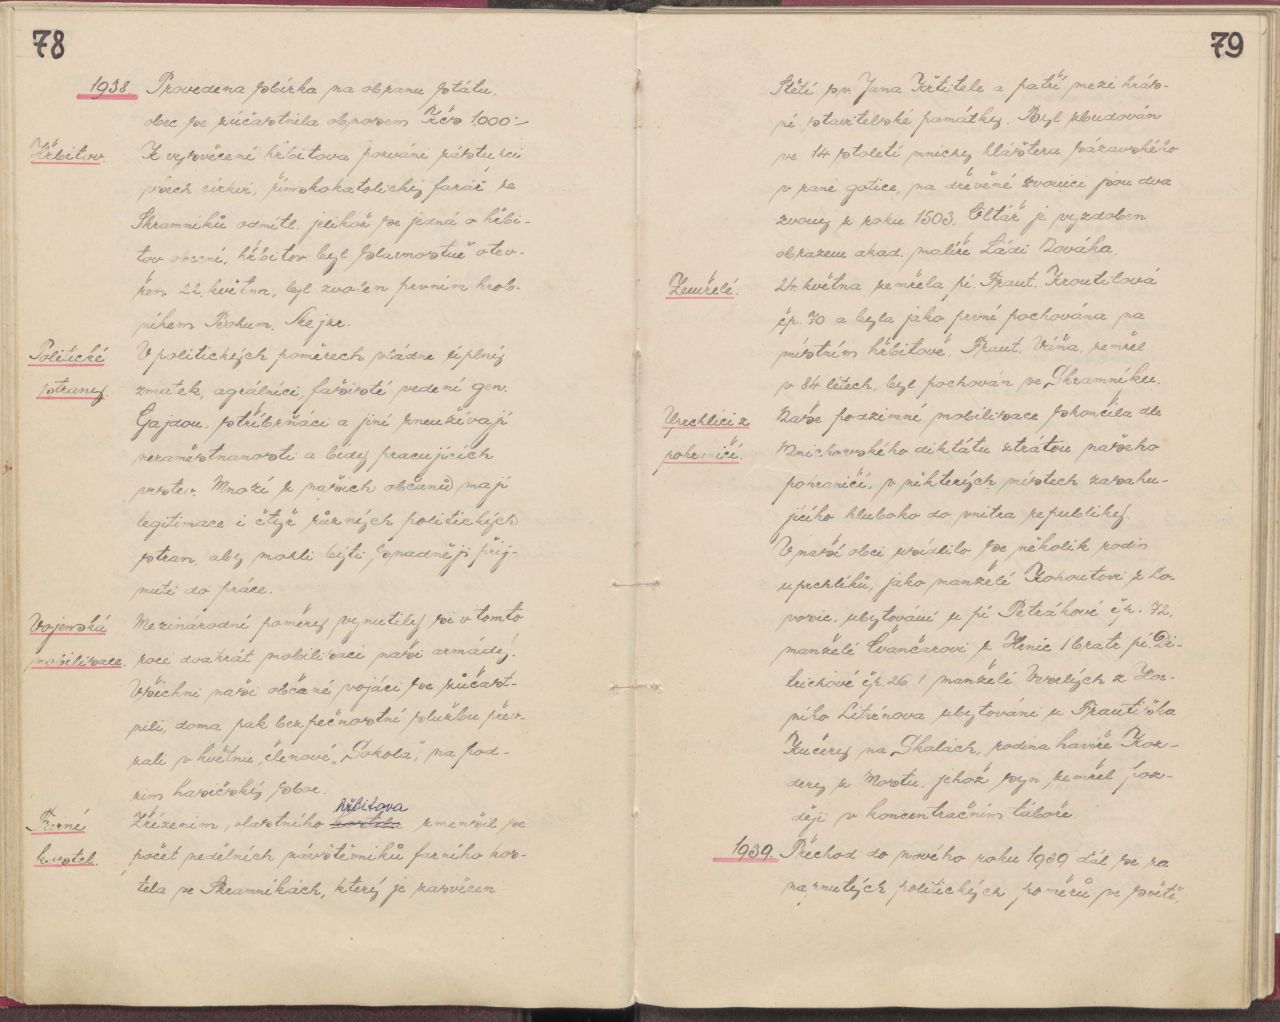 78
1938. Provedena sbírka na obranu státu,
obec se súčastnila obnosem Kčs 1.000:-
Hřbitov. K vysvěcení hřbitova pozváni zástupci
všech církví, římskokatolický farář ze
Skramníků odmítl, jelikož se jedná o hřbi-
tov obecní, hřbitov byl slavnostně otev-
řen 22. května, byl zvolen prvním hrob-
níkem Bohum. Nejzr.
Politické V politických poměrech vládne úplný
strany. zmatek, agrálníci, fašisté vedení gen.
Gajdou, stříbrňáci a jiní zneužívají
nezaměstnanosti a bídy pracujících
vrstev. Mnozí z našich občanů mají
legitimace i čtyř různých politických
stran, aby mohli býti snadněji přij-
muti do práce.
Vojenská Mezinárodní poměry vynutily si v tomto
mobilisace. roce dvakrát mobilisaci naší armády.
Všichni naši občané vojáci se súčast-
nili, doma pak bezpečnostní službu přev-
zali v květnu členové „Sokola", na pod-
zim hasičský sbor.
hřbitova
Farní Zřízením vlastního kostela zmenšil se
kostel. počet nedělních návštěvníků farního kos-
tela ve Skramníkách, který je zasvěcen
79
Stětí sv. Jana Křtitele a patří mezi krás-
né stavitelské památky. Byl zbudován
ve 14 století mnichy kláštera sázavského
v rané gotice, na dřevěné zvonici jsou dva
zvony z roku 1503. Oltář je vyzdoben
obrazem akad. malíře Ládi Nováka.
Zemřelé. 24 května zemřela pí. Frant. Kroutilová
čp. 70 a byla jako první pochována na
místním hřbitově, Frant. Váňa, zemřel
v 84 létech, byl pochován ve Skramníku.
Uprchlíci z Naše podzimní mobilisace skončila dle
pohraničí. Mnichovského diktátu ztrátou našeho
pohraničí, v některých místech zasahu-
jícího hluboko do vnitra republiky.
V naší obci usídlilo se několik rodin
uprchlíků, jako manželé Kohoutovi z Lo-
vosic, ubytováni u pí Petrákové čp. 72,
manželé Švančarovi z Hrnic /bratr pí. Di-
trichové čp. 26 / manželé Veselých z Hor-
ního Litvínova ubytováni u Františka
Kučery na Skalách, rodina havíře Kor-
dery z Mostu, jehož syn zemřel poz-
ději v koncentračním táboře.
1939. Přechod do nového roku 1939 dál se za
napnutých politických poměrů ve světě,